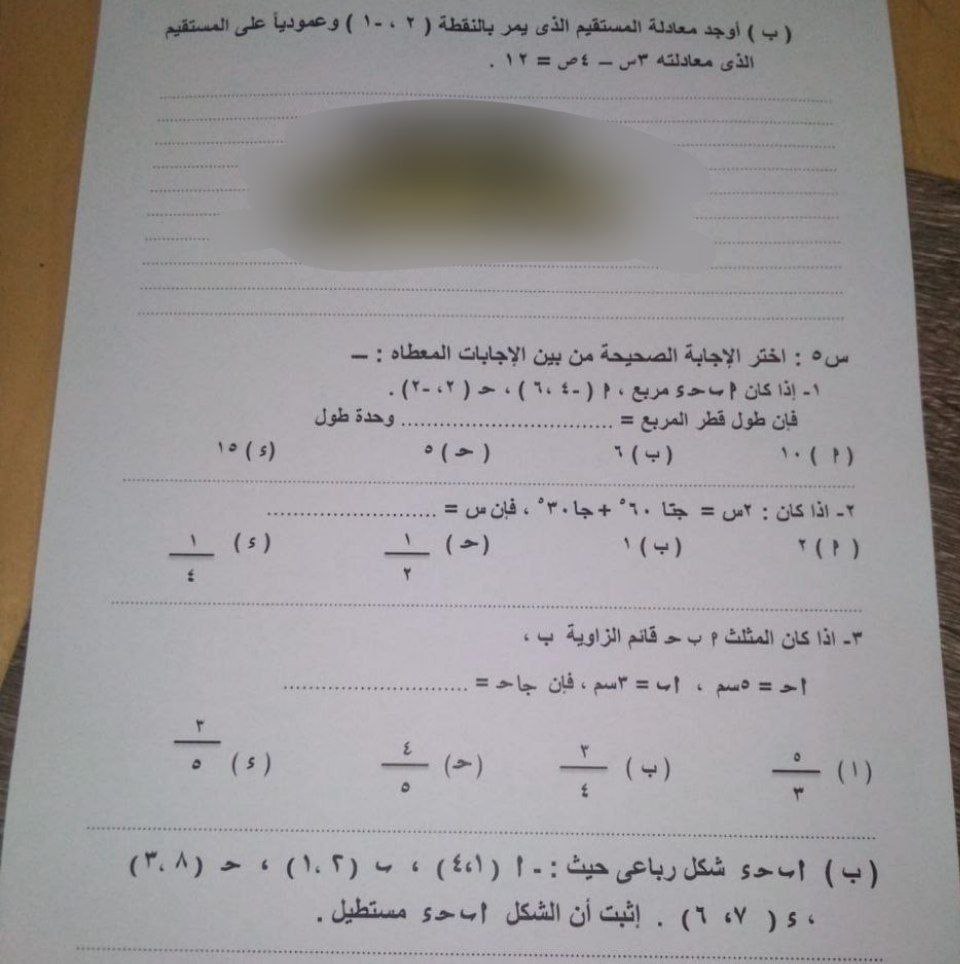 ( ب ) أوجد معادلة المستقيم الذى يمر بالنقطة ( ٢ ، -١ ) وعمودياً على المستقيم
الذى معادلته ٣س – ٤ص = ١٢ .
س٥ : اختر الإجابة الصحيحة من بين الإجابات المعطاه : –
١- إذا كان ا ب حـ ء مربع ، ا ( -٤ ،٦ ) ، حـ ( ٢ ،-٢ ) .
فإن طول قطر المربع = ................................ وحدة طول
( ا ) ١٠ ( ب ) ٦ ( حـ ) ٥ ( ء ) ١٥
٢- اذا كان : ٢س = جتا ٦٠° + جا٣٠° ، فإن س = .........................
( ا ) ٢ ( ب ) ١ ( حـ ) ١/٢ ( ء ) ١/٤
٣- اذا كان المثلث ا ب حـ قائم الزاوية ب ،
احـ = ٥سم ، اب = ٣سم ، فإن جاحـ = ...........................
( ا ) ٥/٣ ( ب ) ٣/٤ ( حـ ) ٤/٥ ( ء ) ٣/٥
( ب ) اب حـ ء شكل رباعى حيث : - ا ( ١ ،٤ ) ، ب ( ٢ ،١ ) ، حـ ( ٨ ،٣ )
، ء ( ٧ ، ٦ ) . إثبت أن الشكل اب حـ ء مستطيل .